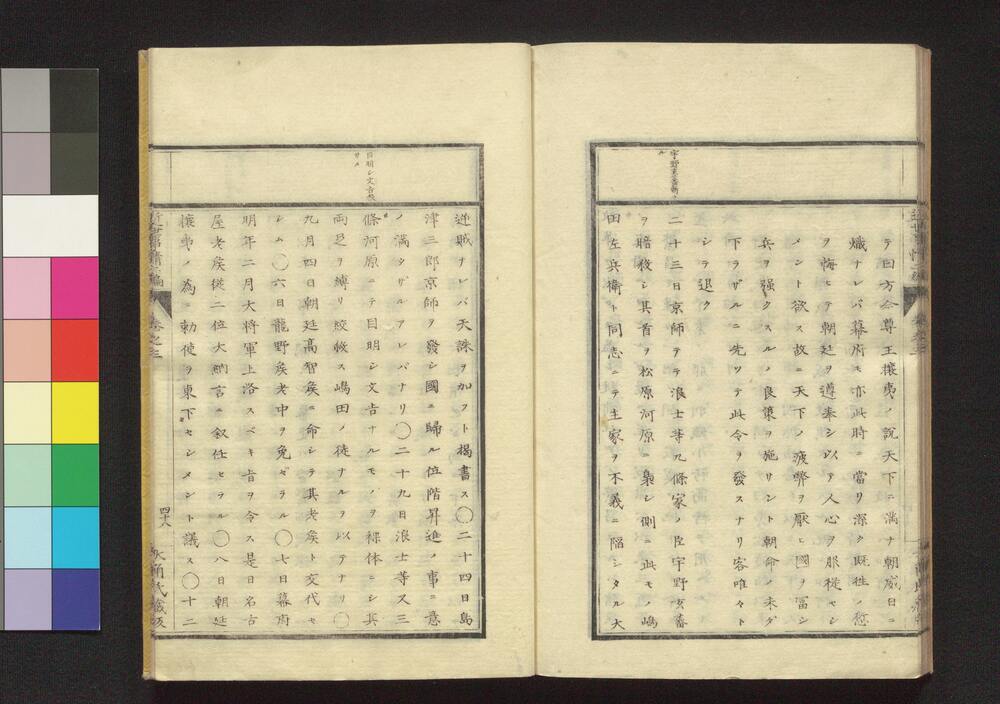 テ曰方今尊王攘夷ノ説天下ニ満ナ朝威日ニ
熾ナレバ幕府モ亦此時ニ當リ深ク既往ノ愆
ヲ悔ヒテ朝廷ヲ遵奉シ以テ人心ヲ服従セシ
メント欲ス故ニ天下ノ疲弊ヲ厭ヒ國ヲ冨シ
兵ヲ强クスルノ良策ヲ施サント朝命ノ未ダ
下ラザルニ先ツテ此令ヲ發スナリ客唯々ト
シテ退ク
二十三日京師ニテ浪士等九條家ノ臣宇野玄蕃
ヲ暗殺シ其首ヲ松原河原ニ梟シ側ニ此モノ嶋
田左兵衛ト同志ニテ主家ヲ不義ニ陥シタル大
逆賊ナレバ天誅ヲ加フト掲書ス〇二十四日島
津三郎京師ヲ發シ國ニ歸ル位階昇進ノ事ニ意
ノ満タザルアレバナリ〇二十九日浪士等又三
條河原ニテ目明シ文吉ナルモノヲ裸体ニシ其
両足ヲ縛リ絞殺ス嶋田ノ徒ナルヲ以テナリ〇
九月四日朝廷高智矦ニ命シテ其老矦ト交代セ
シム〇六日龍野矦老中ヲ免ゼラル〇七日幕府
明年二月大将軍上洛スベキ旨ヲ令ス是日名古
屋老矦従二位大納言ニ叙任セラル〇八日朝廷
攘夷ノ為ニ勅使ヲ東下セシメント議ス〇十二
巻之三
四十八